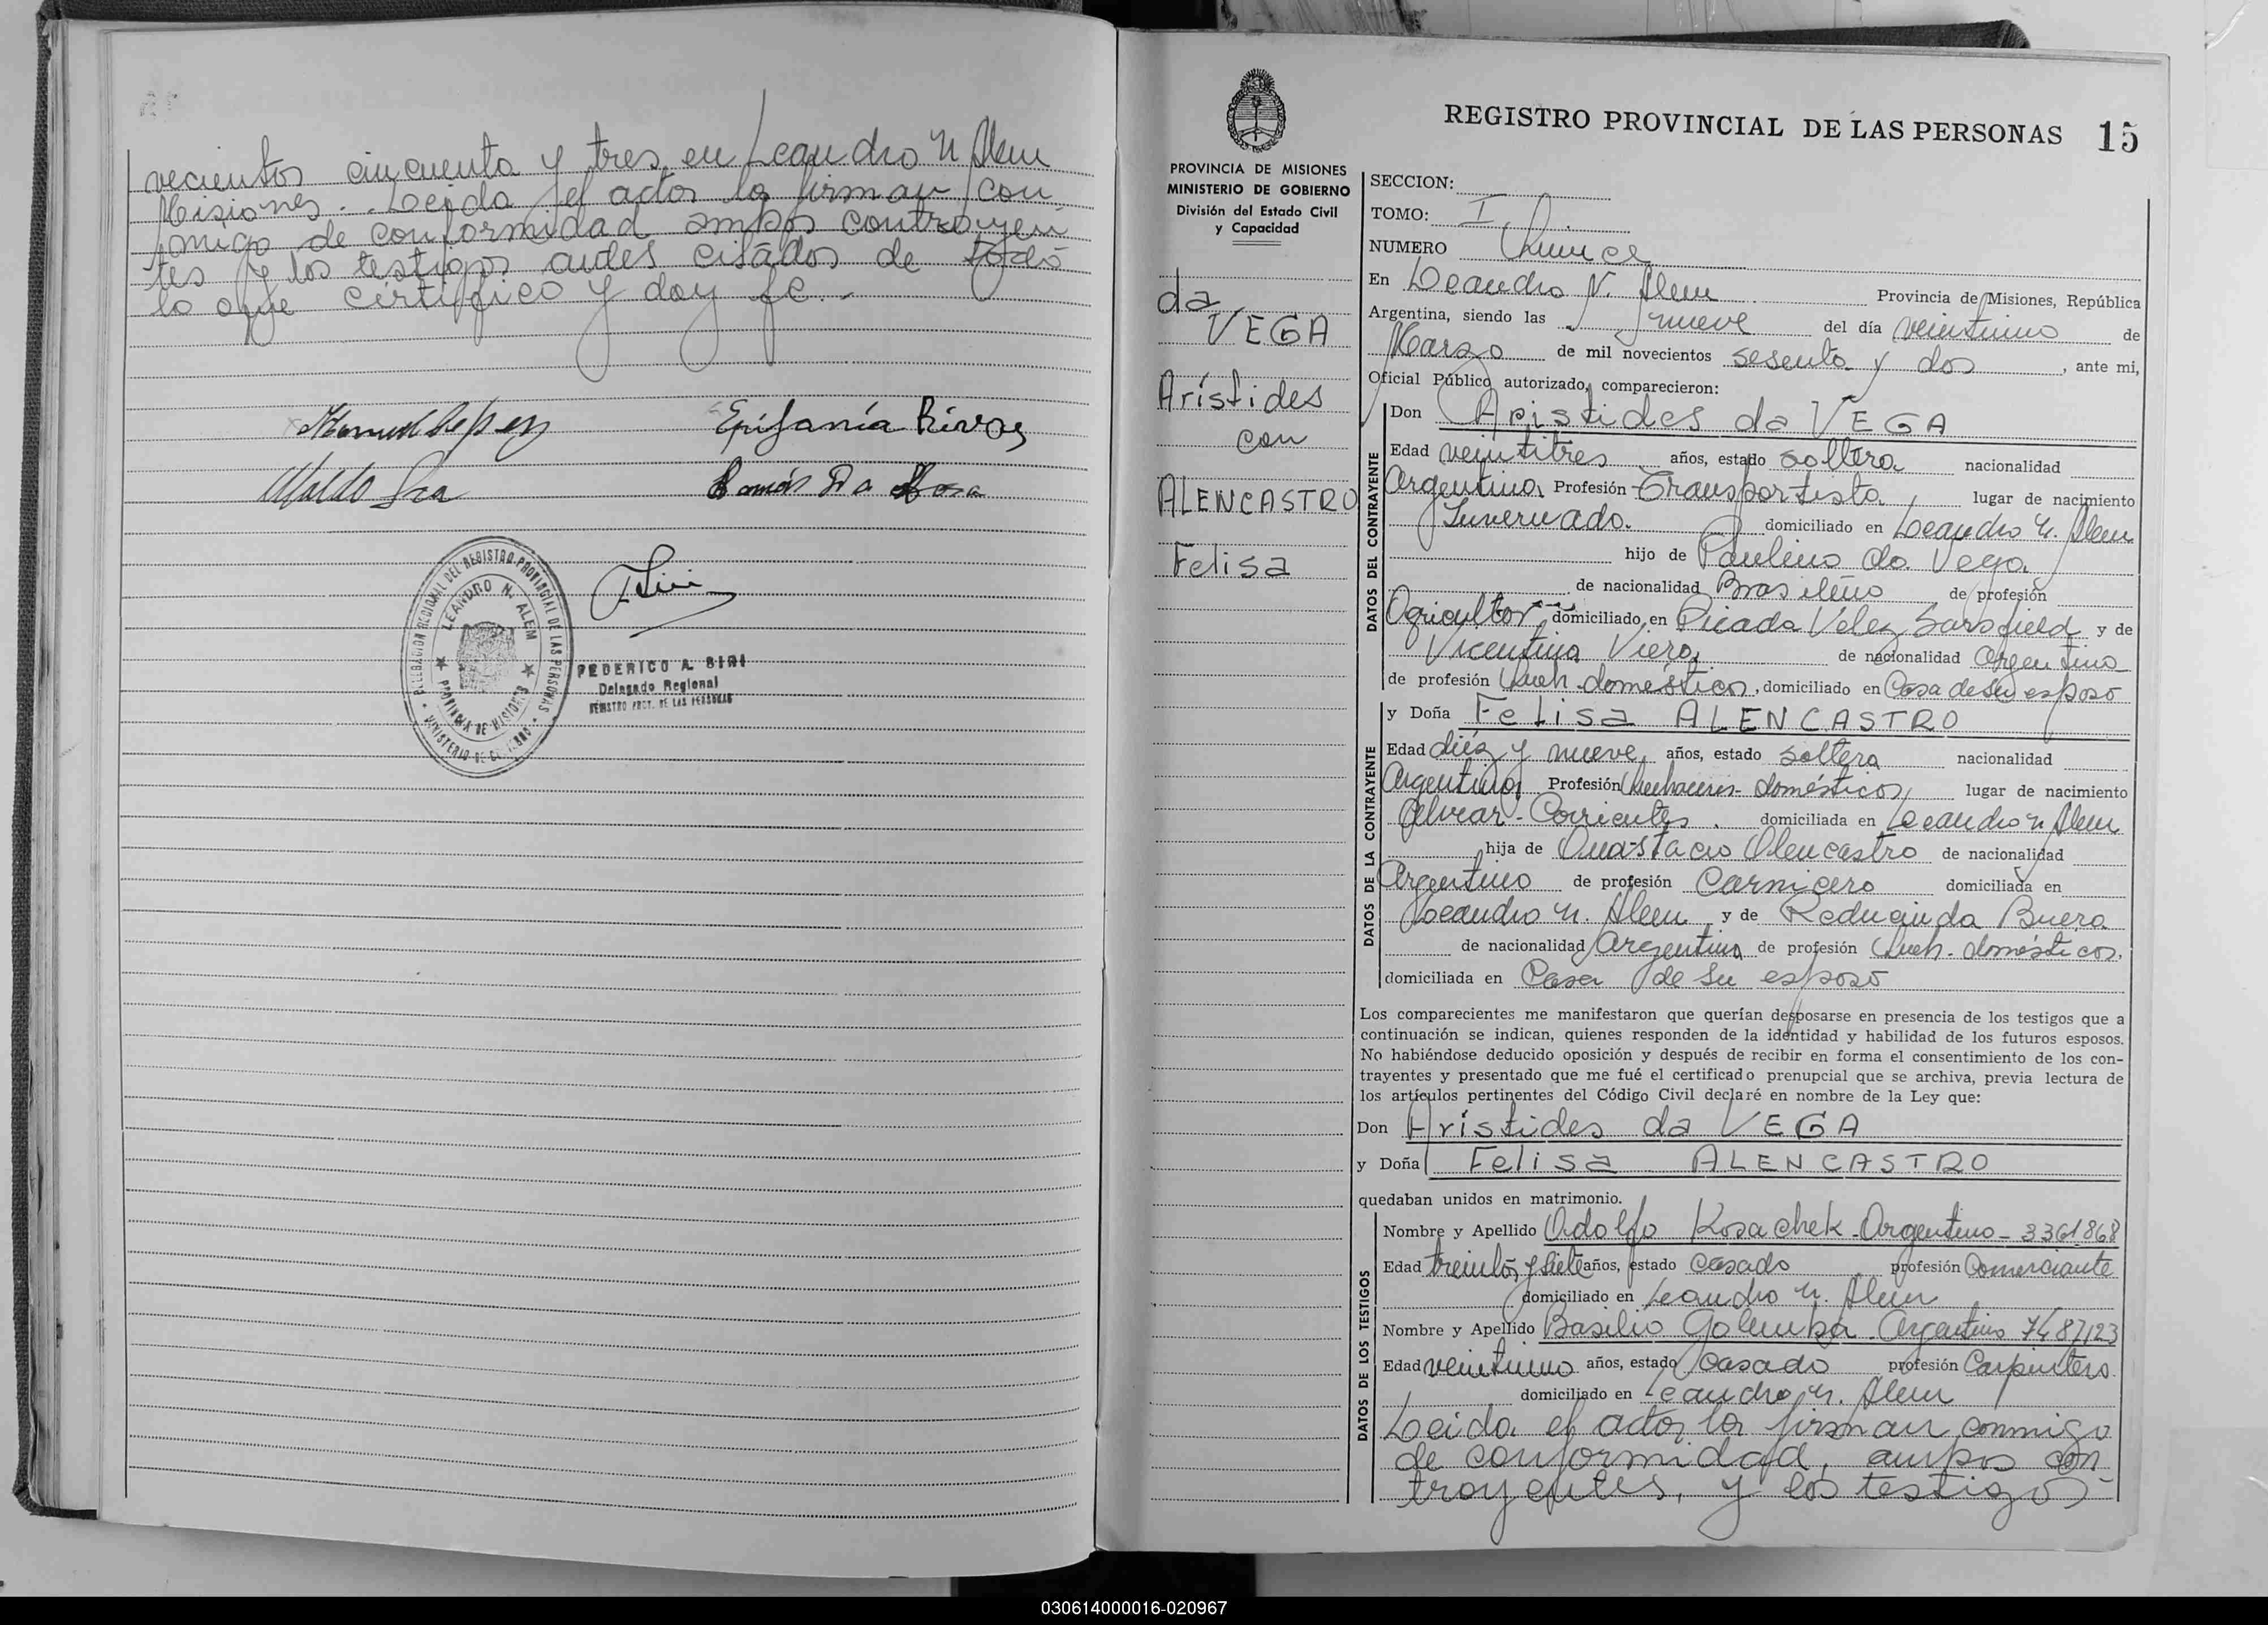 vecientos cincuenta y tres en Leandro N Alem
Misiones. Leida el acta la firman con
migo de conformidad ambos contrayen
tes y los testigos antes citados de todo
lo que certifico y doy fe.-
Epifanía Rivas
Ramón Da Rosa
DELEGACION REGIONAL DEL REGISTRO PROVINCIAL DE LAS PERSONAS
LEANDRO N. ALEM
PROVINCIA DE MISIONES
MINISTERIO DE GOBIERNO
FEDERICO A. SIRI
Delegado Regional
REGISTRO PROV. DE LAS PERSONAS
REGISTRO PROVINCIAL DE LAS PERSONAS 15
PROVINCIA DE MISIONES
MINISTERIO DE GOBIERNO
División del Estado Civil
y Capacidad
da
VEGA
Arístides
con
ALENCASTRO
Felisa
SECCION:
TOMO: I
NUMERO Quince
En Leandro N. Alem Provincia de Misiones, República
Argentina, siendo las nueve del día veintiuno de
Marzo de mil novecientos sesenta y dos, ante mi,
Oficial Público autorizado, comparecieron:
DATOS DEL CONTRAYENTE
Don Aristides da VEGA
Edad veintitres años, estado soltero nacionalidad
Argentina Profesión Transportista, lugar de nacimiento
Invernada. domiciliado en Leandro N. Alem
hijo de Paulino da Vega
de nacionalidad Brasileño de profesión
Agricultor domiciliado en Picada Velez Sarsfield y de
Vicentina Viera de nacionalidad Argentina
de profesión Queh. domesticos, domiciliado en Casa de su esposo
DATOS DE LA CONTRAYENTE
y Doña Felisa ALENCASTRO
Edad diez y nueve años, estado soltera nacionalidad
Argentina Profesión Quehaceres domésticos, lugar de nacimiento
Alvear - Corrientes. domiciliada en Leandro N Alem
hija de Anastacio Alencastro de nacionalidad
Argentino de profesión Carnicero domiciliada en
Leandro N. Alem y de Reducinda Buera
de nacionalidad Argentina de profesión Queh. domésticos.
domiciliada en Casa de su esposo
Los comparecientes me manifestaron que querían desposarse en presencia de los testigos que a
continuación se indican, quienes responden de la identidad y habilidad de los futuros esposos.
No habiéndose deducido oposición y después de recibir en forma el consentimiento de los con-
trayentes y presentado que me fué el certificado prenupcial que se archiva, previa lectura de
los artículos pertinentes del Código Civil declaré en nombre de la Ley que:
Don Arístides da VEGA
y Doña Felisa ALENCASTRO
quedaban unidos en matrimonio.
DATOS DE LOS TESTIGOS
Nombre y Apellido Adolfo Kosachek - Argentino - 3361868
Edad treinta y siete años, estado casado profesión Comerciante
domiciliado en Leandro N. Alem
Nombre y Apellido Basilio Golemba - Argentino 7487123
Edad veintiuno años, estado Casado profesión Carpintero
domiciliado en Leandro N. Alem
Leida el acta, la firman conmigo
de conformidad, ambos con
trayentes, y los testigos
030614000016-020967